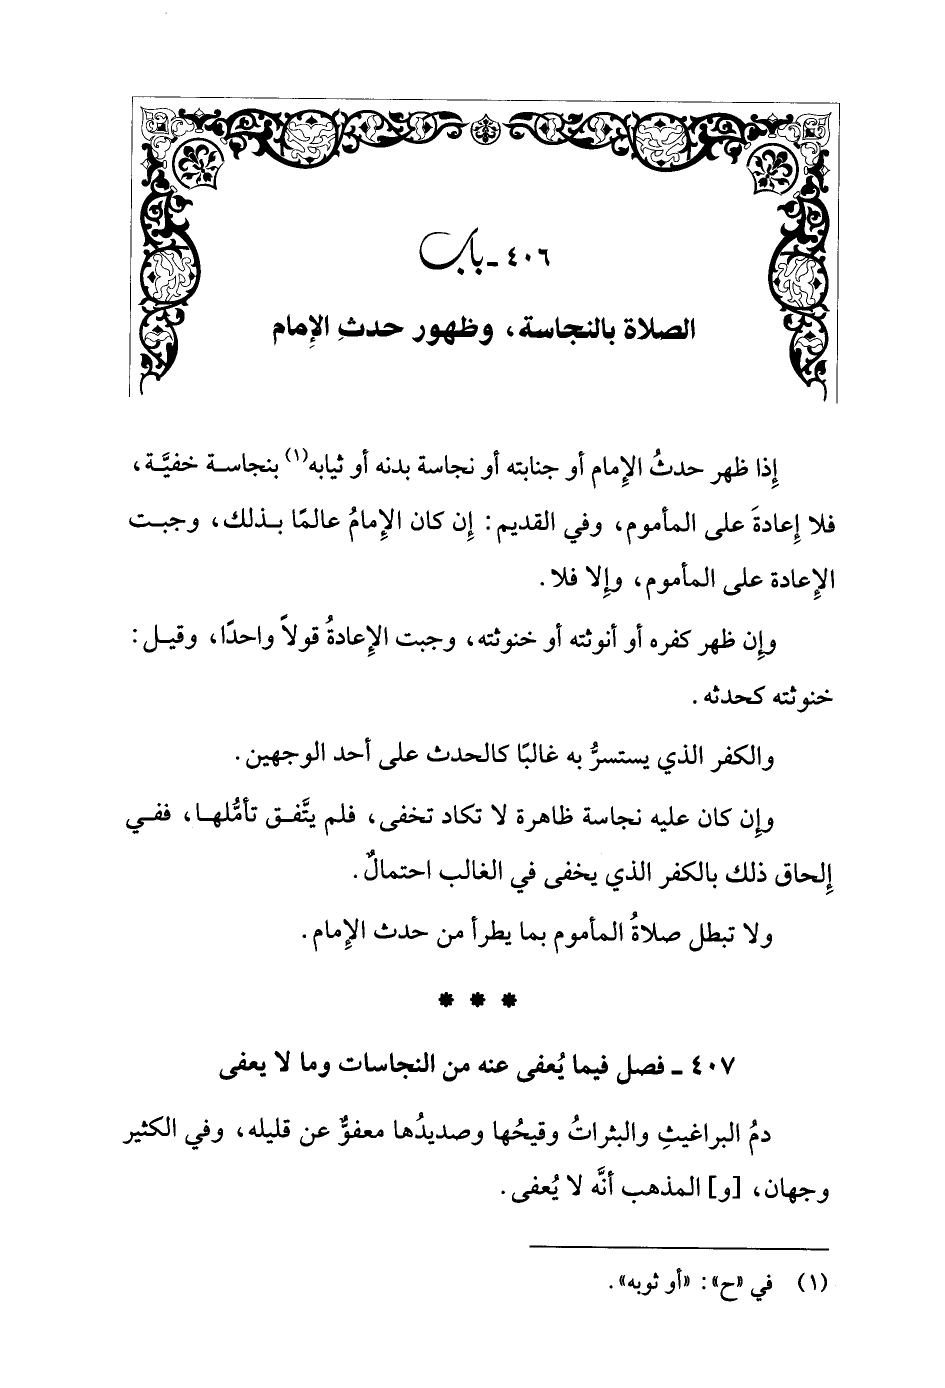 ٤٠٦ - باب
الصلاة بالنجاسة، وظهور حدثِ الإمام
إذا ظهر حدثُ الإمام أو جنابته أو نجاسة بدنه أو ثيابه(١) بنجاسة خفيَّة،
فلا إعادةَ على المأموم، وفي القديم: إن كان الإمامُ عالمًا بذلك، وجبت
الإعادة على المأموم، وإلا فلا.
وإن ظهر كفره أو أنوثته أو خنوثته، وجبت الإعادةُ قولاً واحدًا، وقيل:
خنوثته كحدثه.
والكفر الذي يستسرُّ به غالبًا كالحدث على أحد الوجهين.
وإن كان عليه نجاسة ظاهرة لا تكاد تخفى، فلم يتَّفق تأمُّلها، ففي
إلحاق ذلك بالكفر الذي يخفى في الغالب احتمالٌ.
ولا تبطل صلاةُ المأموم بما يطرأ من حدث الإمام.
* * *
٤٠٧ - فصل فيما يُعفى عنه من النجاسات وما لا يعفى
دمُ البراغيثِ والبثراتُ وقيحُها وصديدُها معفوٌّ عن قليله، وفي الكثير
وجهان، [و] المذهب أنَّه لا يُعفى.
(١) في «ح»: «أو ثوبه».